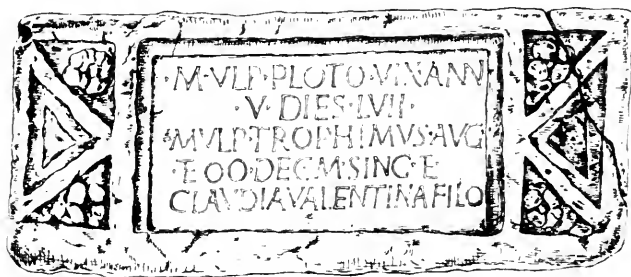 ·M·VLP·PLOTO·VIX·ANN
·V·DIES·LVII·
·M·VLP·TROPHIMVS·AVG
·E·OO·DEC·M·SING·E
CLAVDIA·VALENTINA·FILO